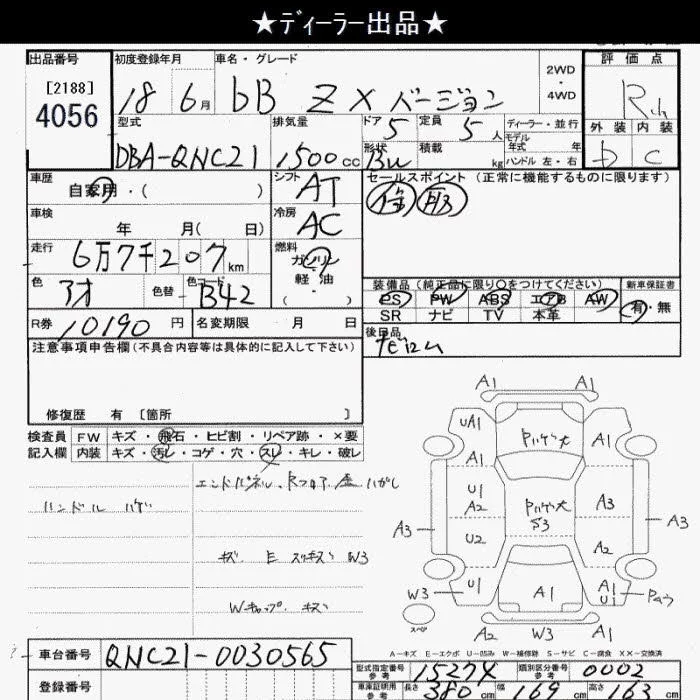 ★ディーラー出品★
出品番号
[2188]
4056
初度登録年月
18 6月
車名・グレード
bB Z X バージョン
2WD
・
4WD
評価点
外装 内装
D C
型式
DBA-QNC21
排気量
1500cc
ドア
5
定員
5人
形状
積載
kg
ディーラー・並行
モデル
年式 年
ハンドル 左・右
車歴
自家用・( )
シフト
AT
セールスポイント (正常に機能するものに限ります)
車検
年 月( 日)
冷房
AC
走行
6万7千207km
燃料
ガソリン
軽・油
( ・ )
色
アオ
色替
色コード
B42
装備品 (純正品に限り○をつけてください)
PS PW ABS エアB AW
SR ナビ TV 本革
新車保証書
有・無
R券
10190円
名変期限 月 日
後日品
注意事項申告欄(不具合内容等は具体的に記入して下さい)
修復歴 有 [箇所 ]
検査員
記入欄
FW キズ・飛石・ヒビ割・リペア跡・×要
内装 キズ・汚レ・コゲ・穴・スレ・キレ・破レ
ハンドル ハゲ
キズ E スリキズ W3
Wキャップ キズ
A1 A1
UA1 A1
A1
U1 A2
A3
A3 A3
S3
U2 A2
U1 A1
A1 U1
W3
スペア
A2 W3 A1
A-キズ E-エクボ U-凹み W-補修跡 S-サビ C-腐食 XX-交換済
車台番号
QNC21-0030565
型式指定番号
参考
15274
類別区分番号
参考
0002
登録番号
車庫証明用
参考
長さ
380cm
幅
169cm
高さ
163cm